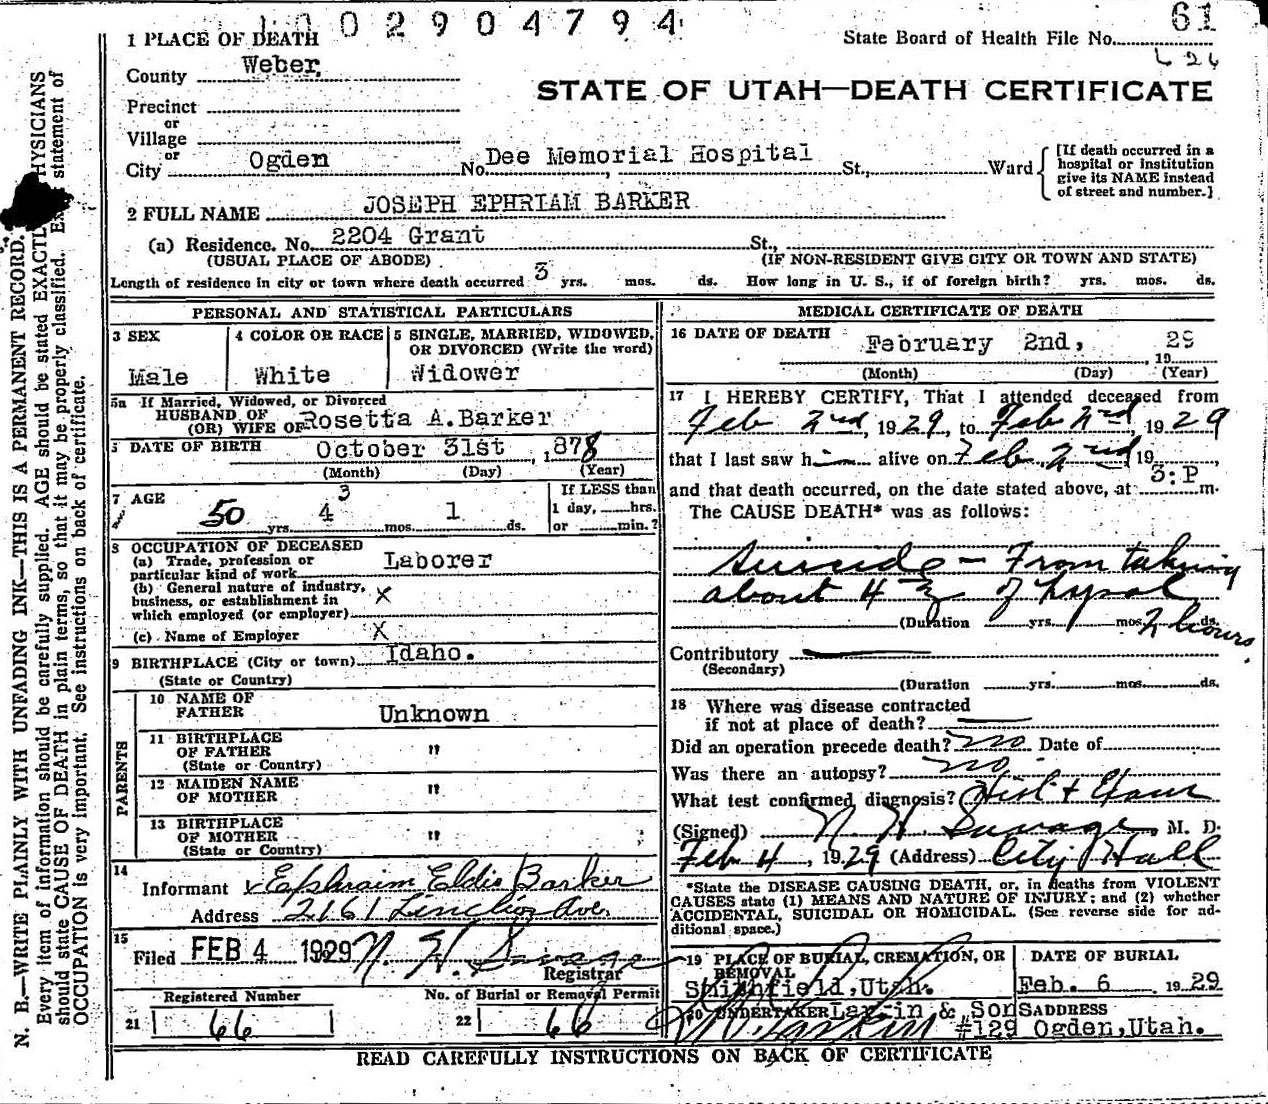 1002904794
61
State Board of Health File No.
626
1 PLACE OF DEATH
County Weber.
STATE OF UTAH—DEATH CERTIFICATE
Precinct
or
Village
or
City Ogden No. Dee Memorial Hospital St., Ward
[If death occurred in a
hospital or institution
give its NAME instead
of street and number.]
2 FULL NAME JOSEPH EPHRIAM BARKER
(a) Residence. No. 2204 Grant St.,
(USUAL PLACE OF ABODE) (IF NON-RESIDENT GIVE CITY OR TOWN AND STATE)
Length of residence in city or town where death occurred 3 yrs. mos. ds. How long in U. S., if of foreign birth? yrs. mos. ds.
PERSONAL AND STATISTICAL PARTICULARS
3 SEX
Male
4 COLOR OR RACE
White
5 SINGLE, MARRIED, WIDOWED,
OR DIVORCED (Write the word)
Widower
5a If Married, Widowed, or Divorced
HUSBAND OF
(OR) WIFE OF Rosetta A. Barker
6 DATE OF BIRTH October 31st, 1878
(Month) (Day) (Year)
7 AGE
3
50 yrs. 4 mos. 1 ds.
If LESS than
1 day, hrs.
or min.?
8 OCCUPATION OF DECEASED
(a) Trade, profession or
particular kind of work Laborer
(b) General nature of industry,
business, or establishment in
which employed (or employer) X
(c) Name of Employer X
9 BIRTHPLACE (City or town) Idaho.
(State or Country)
PARENTS
10 NAME OF
FATHER Unknown
11 BIRTHPLACE
OF FATHER "
(State or Country)
12 MAIDEN NAME
OF MOTHER "
13 BIRTHPLACE
OF MOTHER "
(State or Country)
14
Informant x Ephraim Eldis Barker
Address 2161 Lincoln Ave.
15
Filed FEB 4 1929 N. H. Savage
Registrar
Registered Number
21 66
No. of Burial or Removal Permit
22 66
MEDICAL CERTIFICATE OF DEATH
16 DATE OF DEATH February 2nd, 1929
(Month) (Day) (Year)
17 I HEREBY CERTIFY, That I attended deceased from
Feb 2nd, 1929, to Feb 2nd 1929
that I last saw him alive on Feb 2nd 19
and that death occurred, on the date stated above, at 3:P m.
The CAUSE DEATH* was as follows:
Suicide – From taking
about 4 ℥ of Lysol
(Duration yrs. mos. ds. 2 hours.
Contributory
(Secondary)
(Duration yrs. mos. ds.
18 Where was disease contracted
if not at place of death?
Did an operation precede death? no Date of
Was there an autopsy? no.
What test confirmed diagnosis? Hist + Exam
(Signed) N H Savage, M. D.
Feb 4, 1929 (Address) City Hall
*State the DISEASE CAUSING DEATH, or, in deaths from VIOLENT
CAUSES state (1) MEANS AND NATURE OF INJURY; and (2) whether
ACCIDENTAL, SUICIDAL OR HOMICIDAL. (See reverse side for ad-
ditional space.)
19 PLACE OF BURIAL, CREMATION, OR
REMOVAL
Smithfield, Utah.
DATE OF BURIAL
Feb. 6 1929
20 UNDERTAKER Larkin & Sons ADDRESS
#129 Ogden, Utah.
READ CAREFULLY INSTRUCTIONS ON BACK OF CERTIFICATE
N. B.—WRITE PLAINLY WITH UNFADING INK—THIS IS A PERMANENT RECORD.
Every item of information should be carefully supplied. AGE should be stated EXACTLY. PHYSICIANS
should state CAUSE OF DEATH in plain terms, so that it may be properly classified. statement of
OCCUPATION is very important. See instructions on back of certificate.